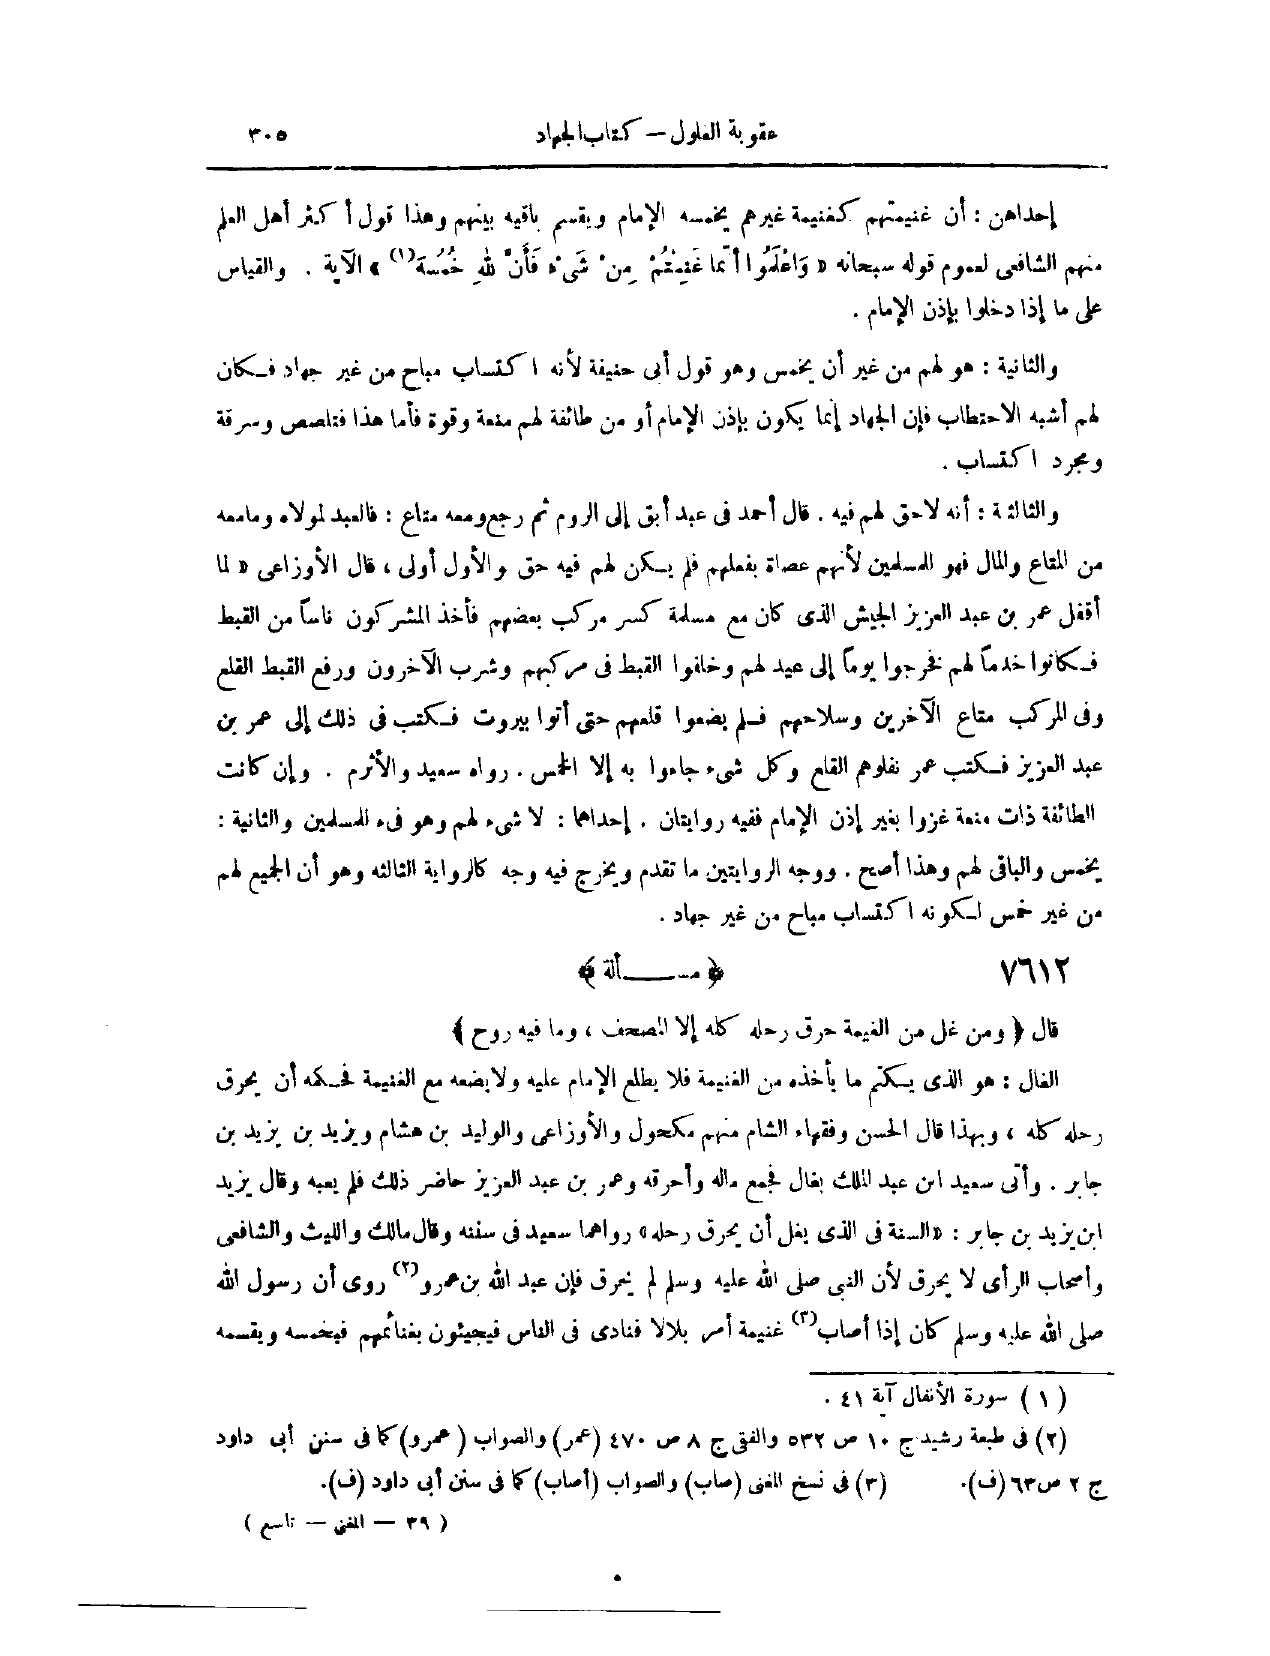 عقوبة الغلول — كتاب الجهاد ٣٠٥
إحداهن : أن غنيمتهم كغنيمة غيرهم يخمسه الإمام ويقسم باقيه بينهم وهذا قول أكثر أهل العلم
منهم الشافعى لعموم قوله سبحانه « وَاعْلَمُوا أَنَّما غَنِمْتُمْ مِنْ شَىْءٍ فَأَنَّ لِلهِ خُمُسَهُ(١) » الآية . والقياس
على ما إذا دخلوا بإذن الإمام .
والثانية : هو لهم من غير أن يخمس وهو قول أبى حنيفة لأنه اكتساب مباح من غير جهاد فكان
لهم أشبه الاحتطاب فإن الجهاد إنما يكون بإذن الإمام أو من طائفة لهم منعة وقوة فأما هذا فتلصص وسرقة
ومجرد اكتساب .
والثالثة : أنه لاحق لهم فيه . قال أحمد فى عبد أبق إلى الروم ثم رجع ومعه متاع : فالعبد لمولاه ومامعه
من المتاع والمال فهو للمسلمين لأنهم عصاة بفعلهم فلم يكن لهم فيه حق والأول أولى ، قال الأوزاعى « لما
أقفل عمر بن عبد العزيز الجيش الذى كان مع مسلمة كسر مركب بعضهم فأخذ المشركون ناساً من القبط
فكانوا خدماً لهم فخرجوا يوماً إلى عيد لهم وخلفوا القبط فى مركبهم وشرب الآخرون ورفع القبط القلع
وفى المركب متاع الآخرين وسلاحهم فلم يضعوا قلعهم حتى أتوا بيروت فكتب فى ذلك إلى عمر بن
عبد العزيز فكتب عمر نفلوهم القلع وكل شىء جاءوا به إلا الخمس . رواه سعيد والأثرم . وإن كانت
الطائفة ذات منعة غزوا بغير إذن الإمام ففيه روايتان . إحداهما : لا شىء لهم وهو فىء للمسلمين والثانية :
يخمس والباقى لهم وهذا أصح . ووجه الروايتين ما تقدم ويخرج فيه وجه كالرواية الثالثه وهو أن الجميع لهم
من غير خمس لكونه اكتساب مباح من غير جهاد .
٧٦١٢ ﴿ مســــألة ﴾
قال ﴿ ومن غل من الغنيمة حرق رحله كله إلا المصحف ، وما فيه روح ﴾
الغال : هو الذى يكتم ما يأخذه من الغنيمة فلا يطلع الإمام عليه ولايضعه مع الغنيمة فحكمه أن يحرق
رحله كله ، وبهذا قال الحسن وفقهاء الشام منهم مكحول والأوزاعى والوليد بن هشام ويزيد بن يزيد بن
جابر . وأتى سعيد ابن عبد الملك بغال فجمع ماله وأحرقه وعمر بن عبد العزيز حاضر ذلك فلم يعبه وقال يزيد
ابن يزيد بن جابر : «السنة فى الذى يغل أن يحرق رحله» رواهما سعيد فى سننه وقال مالك والليث والشافعى
وأصحاب الرأى لا يحرق لأن النبى صلى الله عليه وسلم لم يحرق فإن عبد الله بن عمرو(٢) روى أن رسول الله
صلى الله عليه وسلم كان إذا أصاب(٣) غنيمة أمر بلالا فنادى فى الناس فيجيئون بغنائمهم فيخمسه ويقسمه
( ١ ) سورة الأنفال آية ٤١ .
(٢) فى طبعة رشيد ج ١٠ ص ٥٣٢ والفقى ج ٨ ص ٤٧٠ (عمر) والصواب (عمرو) كما فى سنن أبى داود
ج ٢ ص ٦٣ (ف). (٣) فى نسخ المغنى (صاب) والصواب (أصاب) كما فى سنن أبى داود (ف).
( ٣٩ — المغنى — تاسع )